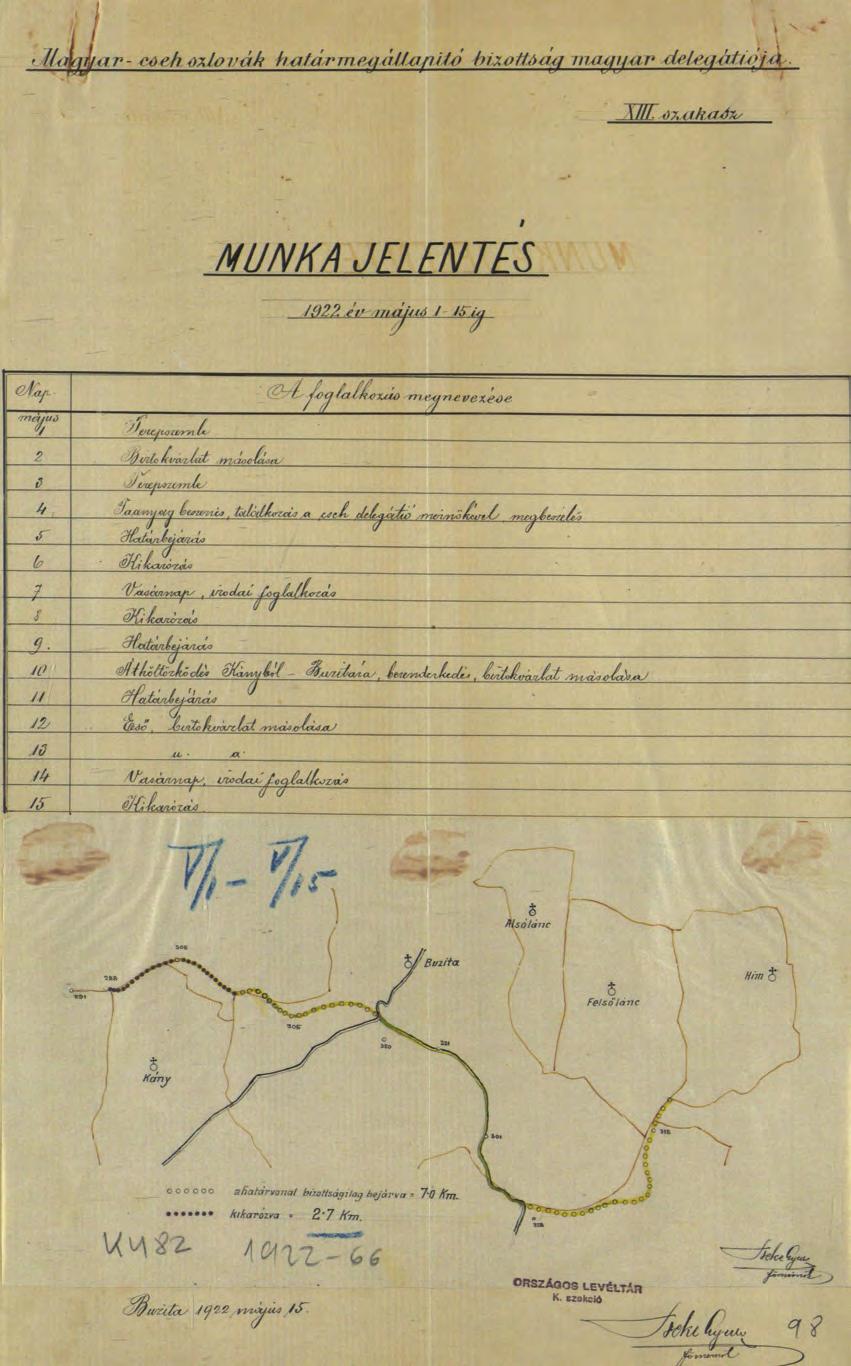 Magyar-csehszlovák határmegállapitó bizottság magyar delegátiója.
XIII. szakasz
MUNKA JELENTÉS
1922 év május 1-15 ig
Nap. A foglalkozás megnevezése
május
1 Terepszemle
2 Birtokvázlat másolása
3 Terepszemle
4. beszerzés, találkozás a cseh delegátió mérnökével, megbeszélés
5 Határbejárás
6 Kikarózás
7 Vasárnap, irodai foglalkozás
8 Kikarózás
9. Határbejárás
10 Átköltözködés Kányból - Buzitára, berendezkedés, birtokvázlat másolása
11 Határbejárás
12 Eső, birtokvázlat másolása
13 u. a.
14 Vasárnap, irodai foglalkozás
15 Kikarózás
V/1 - V/15
Alsólánc
Buzita
Him
Felsőlánc
Kány
a határvonal bizottságilag bejárva = 7·0 Km.
kikarózva = 2·7 Km.
K482 1922-66
ORSZÁGOS LEVÉLTÁR
K. szekció
Buzita 1922 május 15.
98